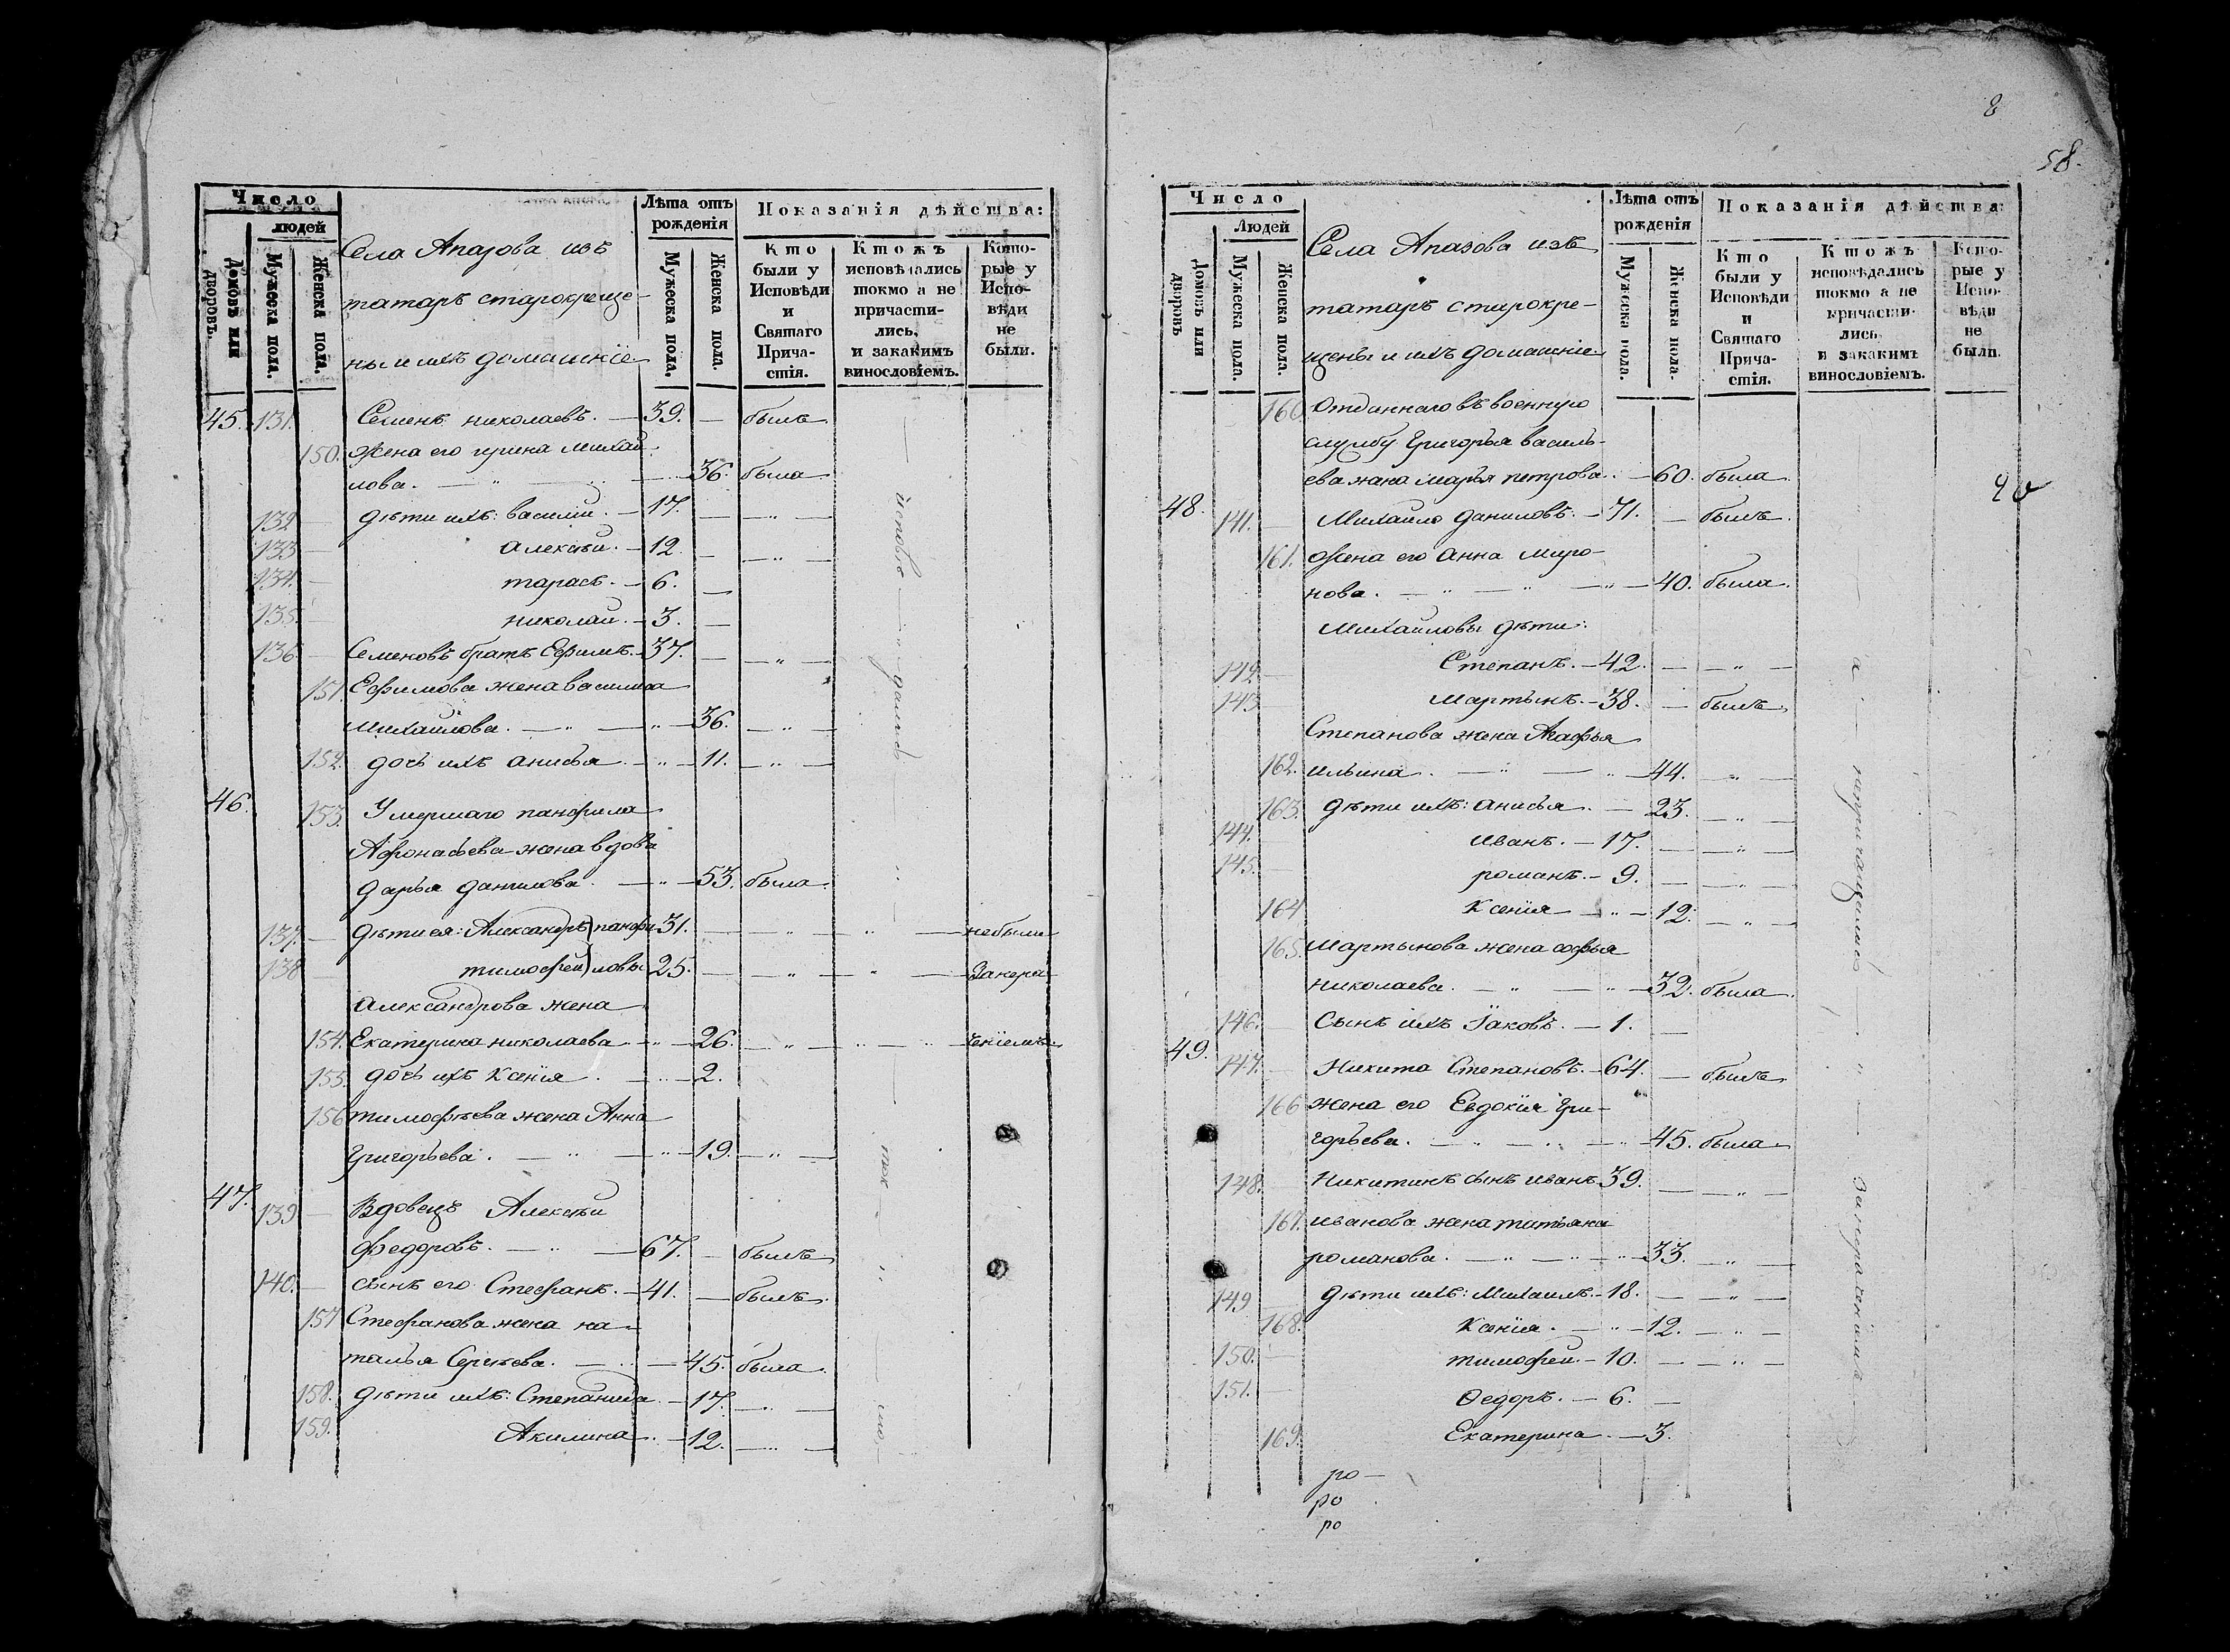 Число
людей
Домовъ или дворовъ.
Мужеска пола.
Женска пола.
Села Апазова изъ
татаръ старокреще-
ны и ихъ домашніе.
Лѣта отъ рожденія
Мужеска пола.
Женска пола.
Показанія дѣйства:
Кто были у Исповѣди и Святаго Прича- стія.
Ктожъ исповѣдались токмо а не причасти- лись. и закакимъ винословіемъ.
Кото- рые у Испо- вѣди не были.
45. 131. Семенъ николаевъ. — 39. — былъ
150. жена его ирина михай-
лова. — " — 36. была
132 — дѣти ихъ: василій. — 17. — — " —
133 — алексѣй. — 12. — — " —
134. — тарасъ. — 6. —
135. — николай. — 3. —
136. — Семеновъ братъ Ефимъ. 37. — — " —
151 Ефимова жена василиса
михайлова. — " — " — 36. — " —
152. дочь ихъ анисья. — " — 11. — " —
46. 153. Умершаго панфила
Афонасьева жена вдова
дарья данилова. — " — 53. была.
137. — дѣти ея: Александръ) панфи 31. — — " — " — небыли
138 — тимофей) ловы 25. — — " — " — занера
александрова жена
154. Екатерина николаева — " — 26. — " — " — " ченіемъ.
155. дочь ихъ Ксенія. — " — 2.
156 тимофѣева жена Анна
Григорьева. — " — " — 19. — " —
47. 139 — Вдовецъ Алексѣй
Федоровъ. — " — 67. — былъ
140. — сынъ его Стефанъ. — 41. — былъ.
157 Стефанова жена на-
талья Сергѣева. — " — 45. была.
158. дѣти ихъ: Степанида. — 17. — " —
159. Акилина — . — 12. — " —
8
58.
Число
Людей
Домовъ или дворовъ
Мужеска пола.
Женска пола.
Села Апазова изъ
татаръ старокре-
щены и ихъ домашніе.
Лѣта отъ рожденія
Мужеска пола.
Женска пола.
Показанія дѣйства:
Кто были у Исповѣди и Святаго Прича- стія.
Ктожъ исповѣдались токмо а не причасти- лись. и закакимъ винословіемъ.
Кото- рые у Испо- вѣди не были.
160. Отданнаго въ военную
службу Григорья василь-
ева жена марья петрова. — 60. была.
48. 141. — Михайло даниловъ. — 71. — былъ.
161. жена его анна миро-
нова. — " — " — " — 40. была.
михайловы дѣти:
142. — Степанъ. — 42. — — " —
143 — мартынъ. — 38. — былъ.
Степанова жена Агафья
162. ильина. — " — " — 44. — " —
163. дѣти ихъ: анисья. — 23. — " —
144. — иванъ. — 17. — — " —
145. — романъ. — 9. — — " —
164 Ксенія — " — 12. — " —
165. Мартынова жена софья
николаева. — " — " — 32. была.
146. — Сынъ ихъ Іаковъ. — 1. —
49. 147. — Никита Степановъ. — 64. — былъ.
166 жена его Евдокія Гри-
горьева. — " — " — " — 45. была.
148. — Никитинъ сынъ иванъ 39. — — " —
167. иванова жена татьяна
романова. — " — " — " — 33. — " —
149 — дѣти ихъ: Михаилъ. — 18. — — " —
168. Ксенія. — " — 12. — " —
150. — тимофей. — 10. — — " —
151. — Ѳедоръ. — 6. —
169. Екатерина. — 3.
ро —
ро
ро